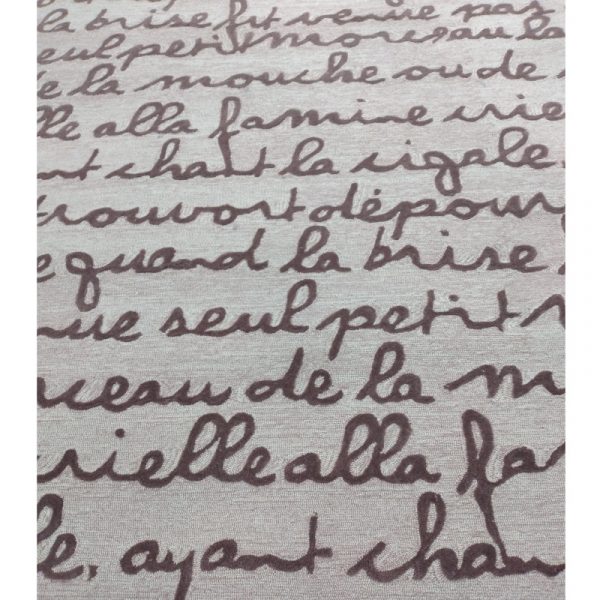 la brise fut venue pas
seul petit morceau la
e la mouche ou de
lle alla famine crie
nt chant la cigale,
trouvort dépour
e quand la brise
nue seul petit
rceau de la m
rielle alla fa
le, ayant chan